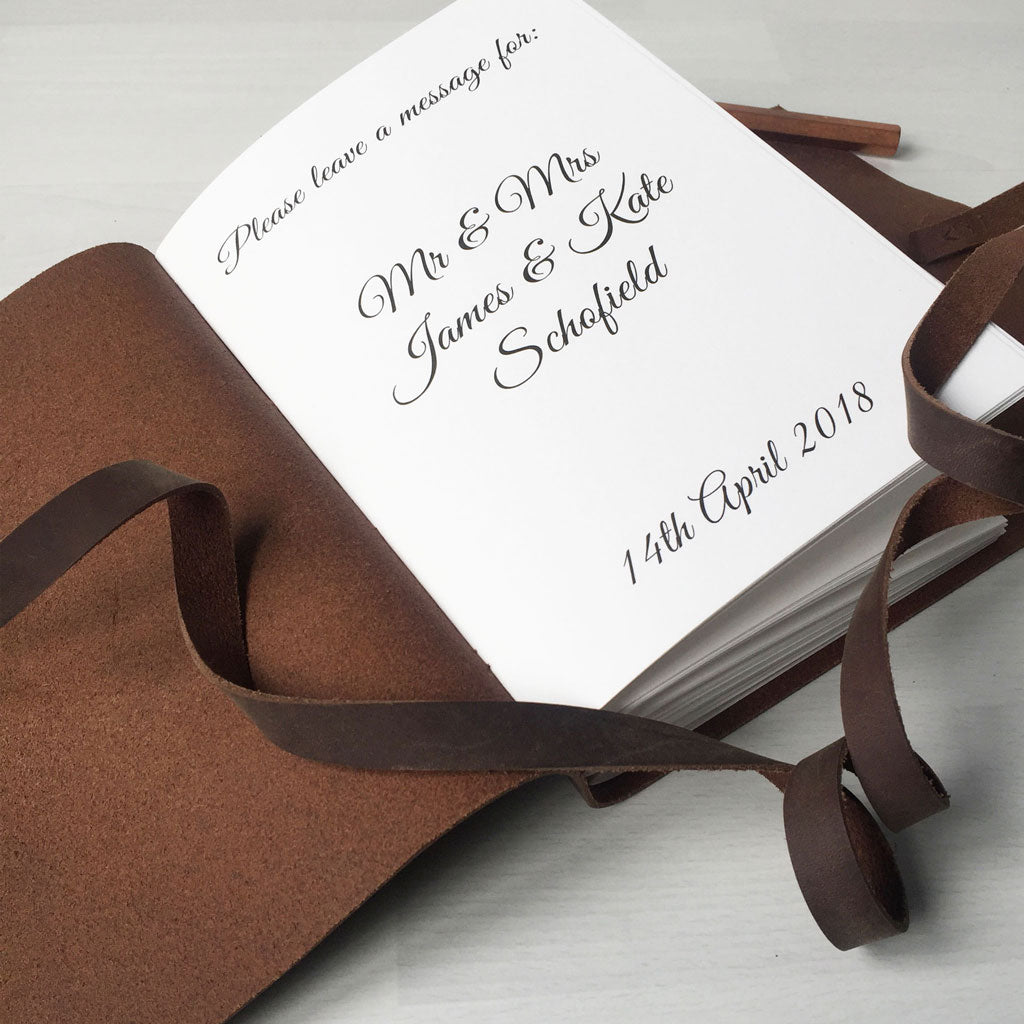 Please leave a message for:
Mr & Mrs
James & Kate
Schofield
14th April 2018